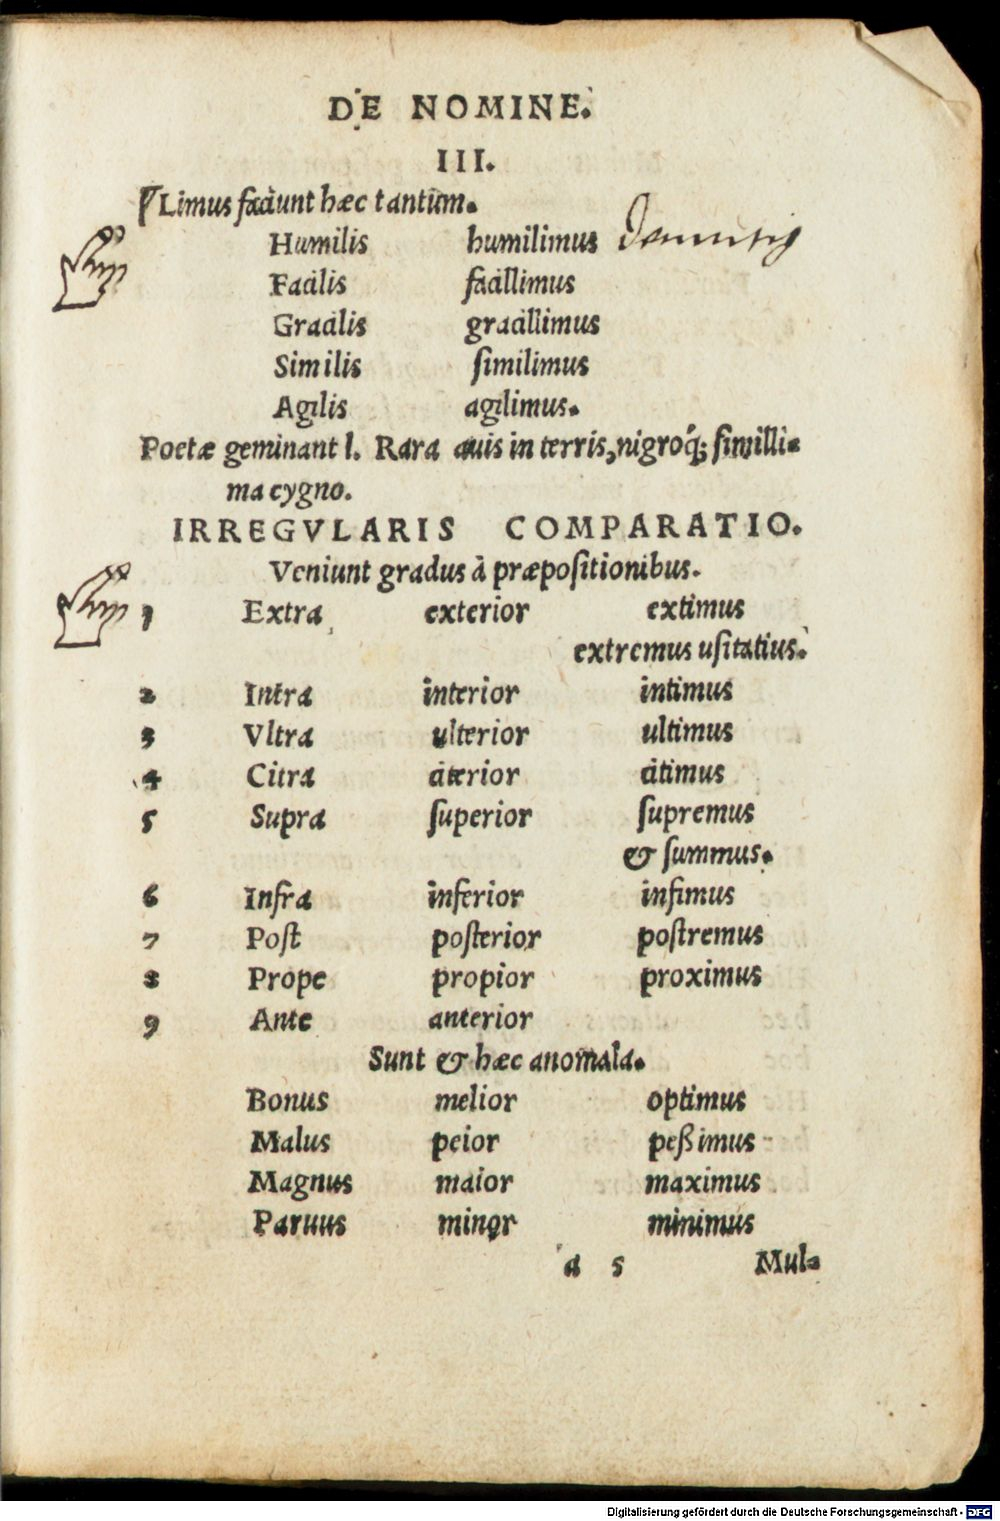 DE NOMINE.
III.
Limus faciunt hæc tantum.
Humilis humilimus demutig
Facilis facillimus
Gracilis gracillimus
Similis ſimilimus
Agilis agilimus.
Poetæ geminant l. Rara auis in terris, nigroq́; ſimilli-
ma cygno.
IRREGVLARIS COMPARATIO.
Veniunt gradus à præpoſitionibus.
1 Extra exterior extimus
extremus uſitatius.
2 Intra interior intimus
3 Vltra ulterior ultimus
4 Citra citerior citimus
5 Supra ſuperior ſupremus
& ſummus.
6 Infra inferior infimus
7 Poſt poſterior poſtremus
8 Prope propior proximus
9 Ante anterior
Sunt & hæc anomala.
Bonus melior optimus
Malus peior peßimus
Magnus maior maximus
Paruus minor minimus
a 5 Mul-
Digitalisierung gefördert durch die Deutsche Forschungsgemeinschaft - DFG